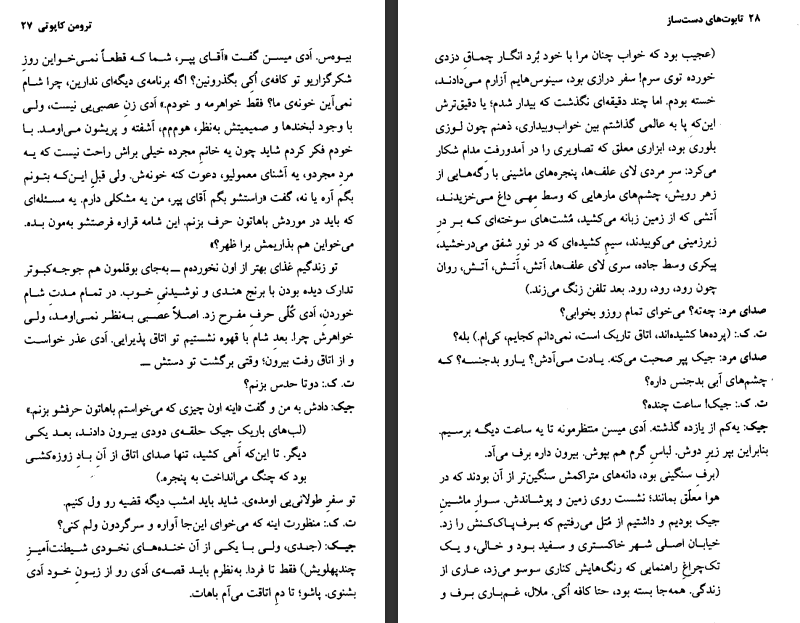 ترومن کاپوتی ۲۷
بیوه‌س. اَدی میسن گفت «آقای پپر، شما که قطعاً نمی‌خواین روزِ
شکرگزاریو تو کافه‌ی اُکِی بگذرونین؟ اگه برنامه‌ی دیگه‌ای ندارین، چرا شام
نمی‌آین خونه‌ی ما؟ فقط خواهرمه و خودم.» اَدی زنِ عصبی‌یی نیست، ولی
با وجود لبخندها و صمیمیتش به‌نظر، هوم‌مم، آشفته و پریشون می‌اومد. بـا
خودم فکر کردم شاید چون یه خانم مجرده خیلی براش راحت نیست که یه
مردِ مجردو، یه آشنای معمولیو، دعوت کنه خونه‌ش. ولی قبلِ این‌کـه بتـونم
بگم آره یا نه، گفت «راستشو بگم آقای پپر، من یه مشکلی دارم. یه مسئله‌ای
که باید در موردش باهاتون حرف بزنم. این شامه قراره فرصتشو بهمون بده.
می‌خواین هم بذاریمش برا ظهر؟»
تو زندگیم غذای بهتر از اون نخورده‌م ــ به‌جای بوقلمون هم جوجه‌کبوتر
تدارک دیده بودن با برنج هندی و نوشیدنیِ خـوب. در تمـام مـدتِ شـام
خوردن، اَدی کُلّی حرفِ مفرح زد. اصـلاً عصبی بـه‌نظـر نمـی‌اومـد، ولـی
خواهرش چرا. بعدِ شام با قهوه نشستیم تو اتاق پذیرایی. اَدی عذر خواسـت
و از اتاق رفت بیرون؛ وقتی برگشت تو دستش ــ
ت. ک.: دوتا حدس بزنم؟
جیک: دادش به من و گفت «اینه اون چیزی که می‌خواستم باهاتون حرفشو بزنم.»
(لب‌های باریک جیک حلقه‌ی دودی بیـرون دادنـد، بعـد یکـی
دیگر. تا این‌که آهی کشید، تنها صدای اتاق از آنِ بـادِ زوزه‌کشی
بود که چنگ می‌انداخت به پنجره.)
تو سفرِ طولانی‌یی اومده‌ی. شاید باید امشب دیگه قضیه رو ول کنیم.
ت. ک.: منظورت اینه که می‌خوای این‌جا آواره و سرگردون ولم کنی؟
جیـک: (جـدی، ولـی بـا یکـی از آن خنـده‌هـای نخـودی شـیطنت‌آمیـزِ
چندپهلویش) فقط تا فردا. به‌نظرم بایـد قصـه‌ی اَدی رو از زبـونِ خـود اَدی
بشنوی. پاشو؛ تا دمِ اتاقت می‌آم باهات.
۲۸ تابوت‌های دست‌ساز
(عجیب بود که خواب چنان مرا با خود بُرد انگار چماقِ دزدی
خورده توی سرم! سفر درازی بود، سینوس‌هایم آزارم مـی‌دادنـد،
خسته بودم. اما چند دقیقه‌ای نگذشت که بیدار شدم؛ یا دقیق‌ترش
این‌که پا به عالمی گذاشتم بین خواب‌وبیداری، ذهنم چون لـوزی
بلوری بود، ابزاری معلق که تصاویری را در آمدورفتِ مدام شکار
می‌کرد: سرِ مردی لای علف‌ها، پنجره‌های ماشینی با رگه‌هایی از
زهر رویش، چشم‌های مارهایی که وسط مِهـی داغ مـی‌خزیدنـد،
آتشی که از زمین زبانه می‌کشید، مُشت‌های سوخته‌ای کـه بـر درِ
زیرزمینی می‌کوبیدند، سیمِ کشیده‌ای که در نورِ شفق می‌درخشید،
پیکری وسط جاده، سری لای علف‌ها، آتش، آتـش، آتـش، روان
چون رود، رود، رود. بعد تلفن زنگ می‌زند.)
صدای مرد: چه‌ته؟ می‌خوای تمام روزو بخوابی؟
ت. ک.: (پرده‌ها کشیده‌اند، اتاق تاریک است، نمی‌دانم کجایم، کی‌ام.) بله؟
صدای مرد: جیک پپر صحبت می‌کنه. یـادت مـی‌آدش؟ یـارو بدجنسـه؟ کـه
چشم‌های آبی بدجنس داره؟
ت. ک.: جیک! ساعت چنده؟
جیک: یه‌کم از یازده گذشته. اَدی میسن منتظرمونه تا یه ساعت دیگـه برسیم.
بنابراین بپر زیرِ دوش. لباسِ گرم هم بپوش. بیرون داره برف می‌آد.
(برفِ سنگینی بود، دانه‌های متراکمش سنگین‌تر از آن بودند که در
هوا معلّق بمانند؛ نشست روی زمین و پوشاندش. سـوارِ ماشـینِ
جیک بودیم و داشتیم از مُتل می‌رفتیم که برف‌پاک‌کنش را زد.
خیابان اصلی شهر خاکستری و سفید بـود و خـالی، و یـک
تک‌چراغِ راهنمایی که رنگ‌هایش کناری سوسو می‌زد، عـاری از
زندگی. همه‌جا بسته بود، حتا کافه اُکی. ملال، غم‌بـاری بـرف و